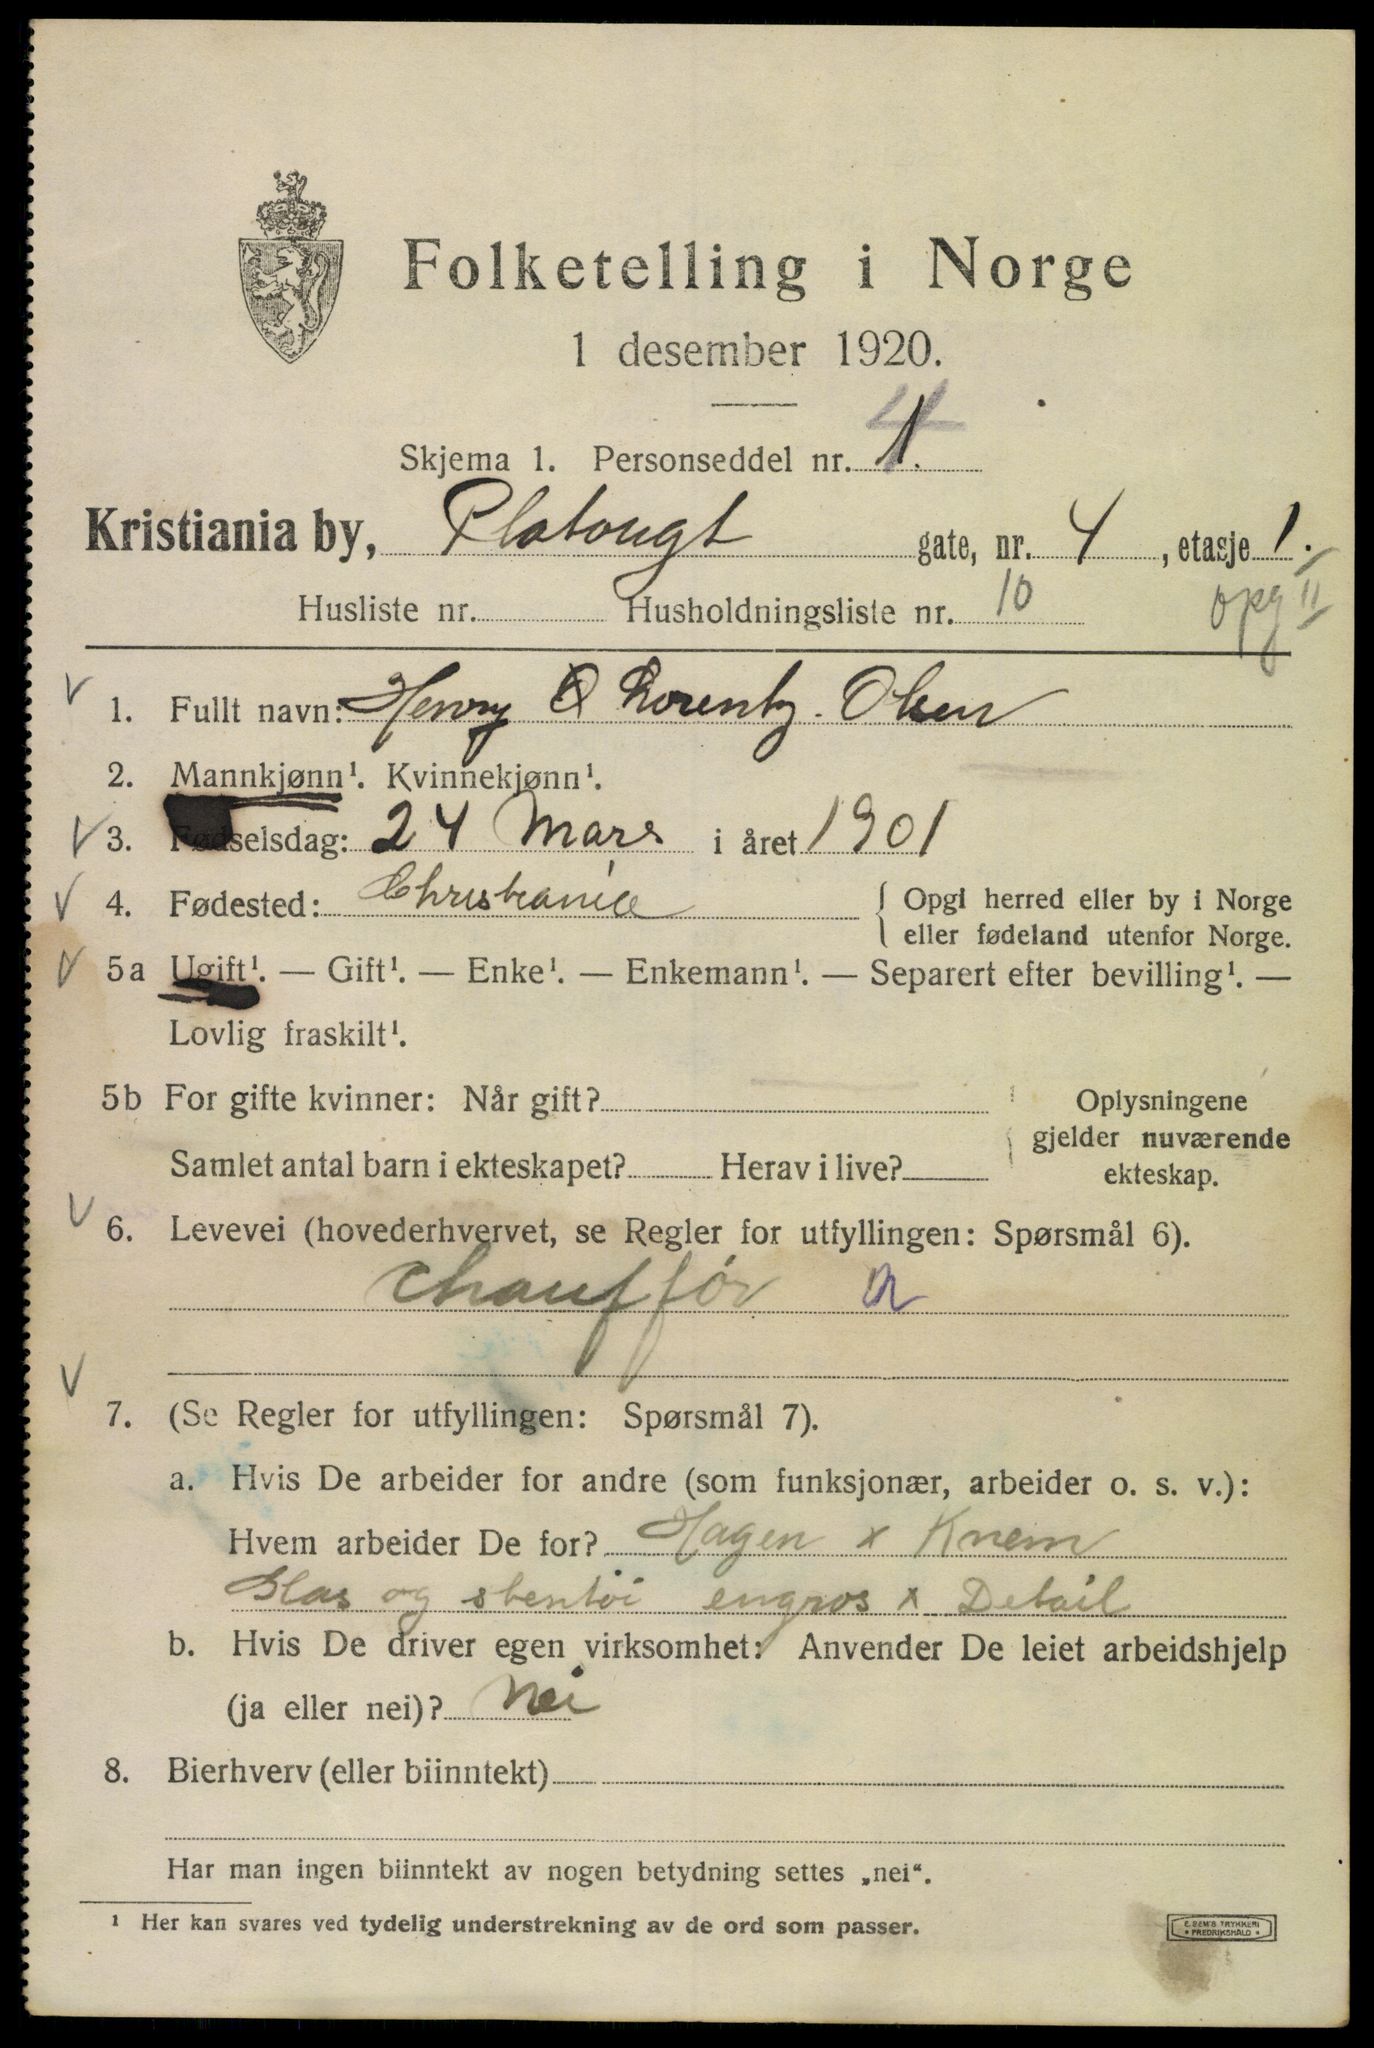 Folketelling i Norge
1 desember 1920.
Skjema 1. Personseddel nr. 1.
Kristiania by, Platougt gate, nr. 4, etasje 1.
Husliste nr. Husholdningsliste nr. 10 opg II
1. Fullt navn: Henry O Lorentz. Olsen
2. Mannkjønn¹. Kvinnekjønn¹.
3. Fødselsdag: 24 Mars i året 1901
4. Fødested: Christiania { Opgi herred eller by i Norge
eller fødeland utenfor Norge.
5a Ugift¹. — Gift¹. — Enke¹. — Enkemann¹. — Separert efter bevilling¹. —
Lovlig fraskilt¹.
5b For gifte kvinner: Når gift? Oplysningene
gjelder nuværende
Samlet antal barn i ekteskapet? Herav i live? ekteskap.
6. Levevei (hovederhvervet, se Regler for utfyllingen: Spørsmål 6).
chauffør
7. (Se Regler for utfyllingen: Spørsmål 7).
a. Hvis De arbeider for andre (som funksjonær, arbeider o. s. v.):
Hvem arbeider De for? Hagen x Knem
Glas og stentöi engros x Detail
b. Hvis De driver egen virksomhet: Anvender De leiet arbeidshjelp
(ja eller nei)? Nei
8. Bierhverv (eller biinntekt)
Har man ingen biinntekt av nogen betydning settes „nei“.
¹ Her kan svares ved tydelig understrekning av de ord som passer.
E. SEM'S TRYKKERI
* FREDRIKSHALD *